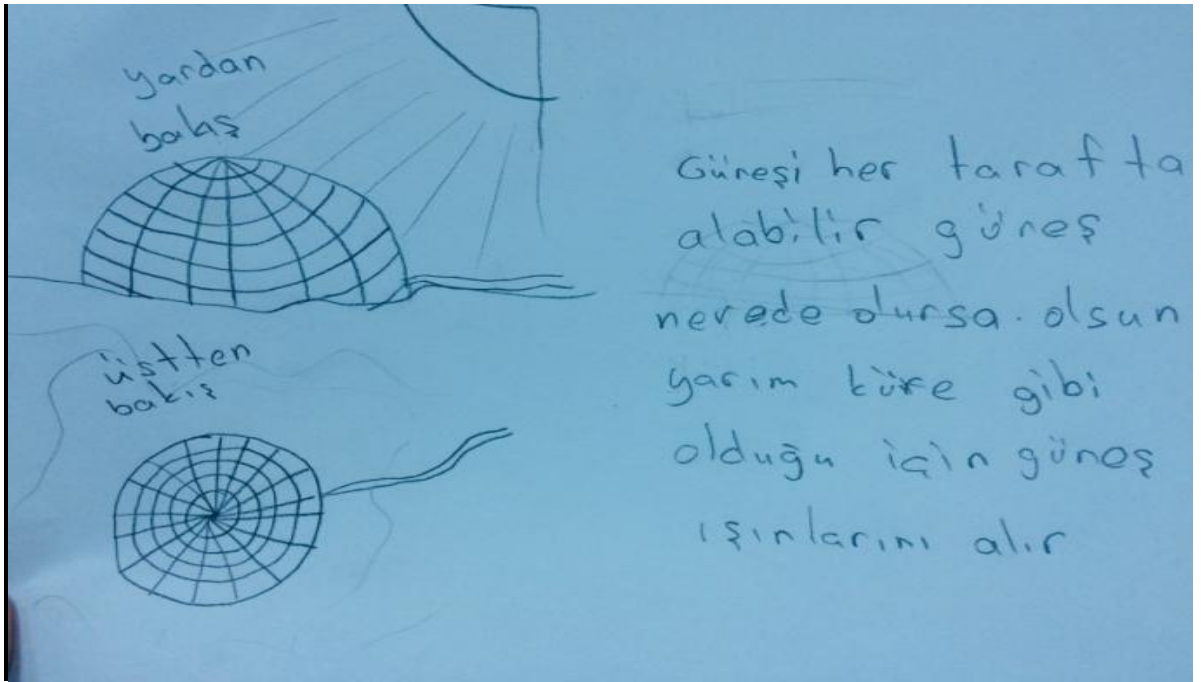 yardan
bakış
üstten
bakış
Güneşi her tarafta
alabilir güneş
nerede olursa. olsun
yarım küre gibi
olduğu için güneş
ışınlarını alır